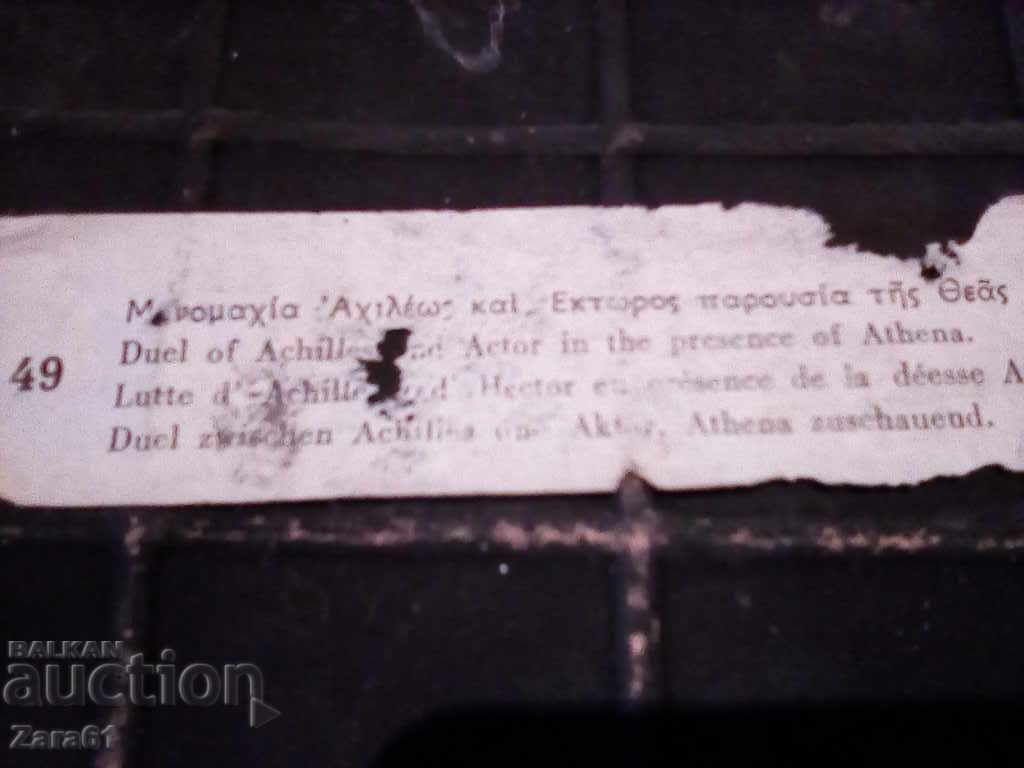 Μονομαχία Ἀχιλέως καὶ Ἕκτωρος παρουσία τῆς Θεᾶς
49
Duel of Achilles and Actor in the presence of Athena.
Lutte d' Achille et d' Hector en présence de la déesse A
Duel zwischen Achilles und Aktor, Athena zuschauend.
BALKAN
auction
Zara61